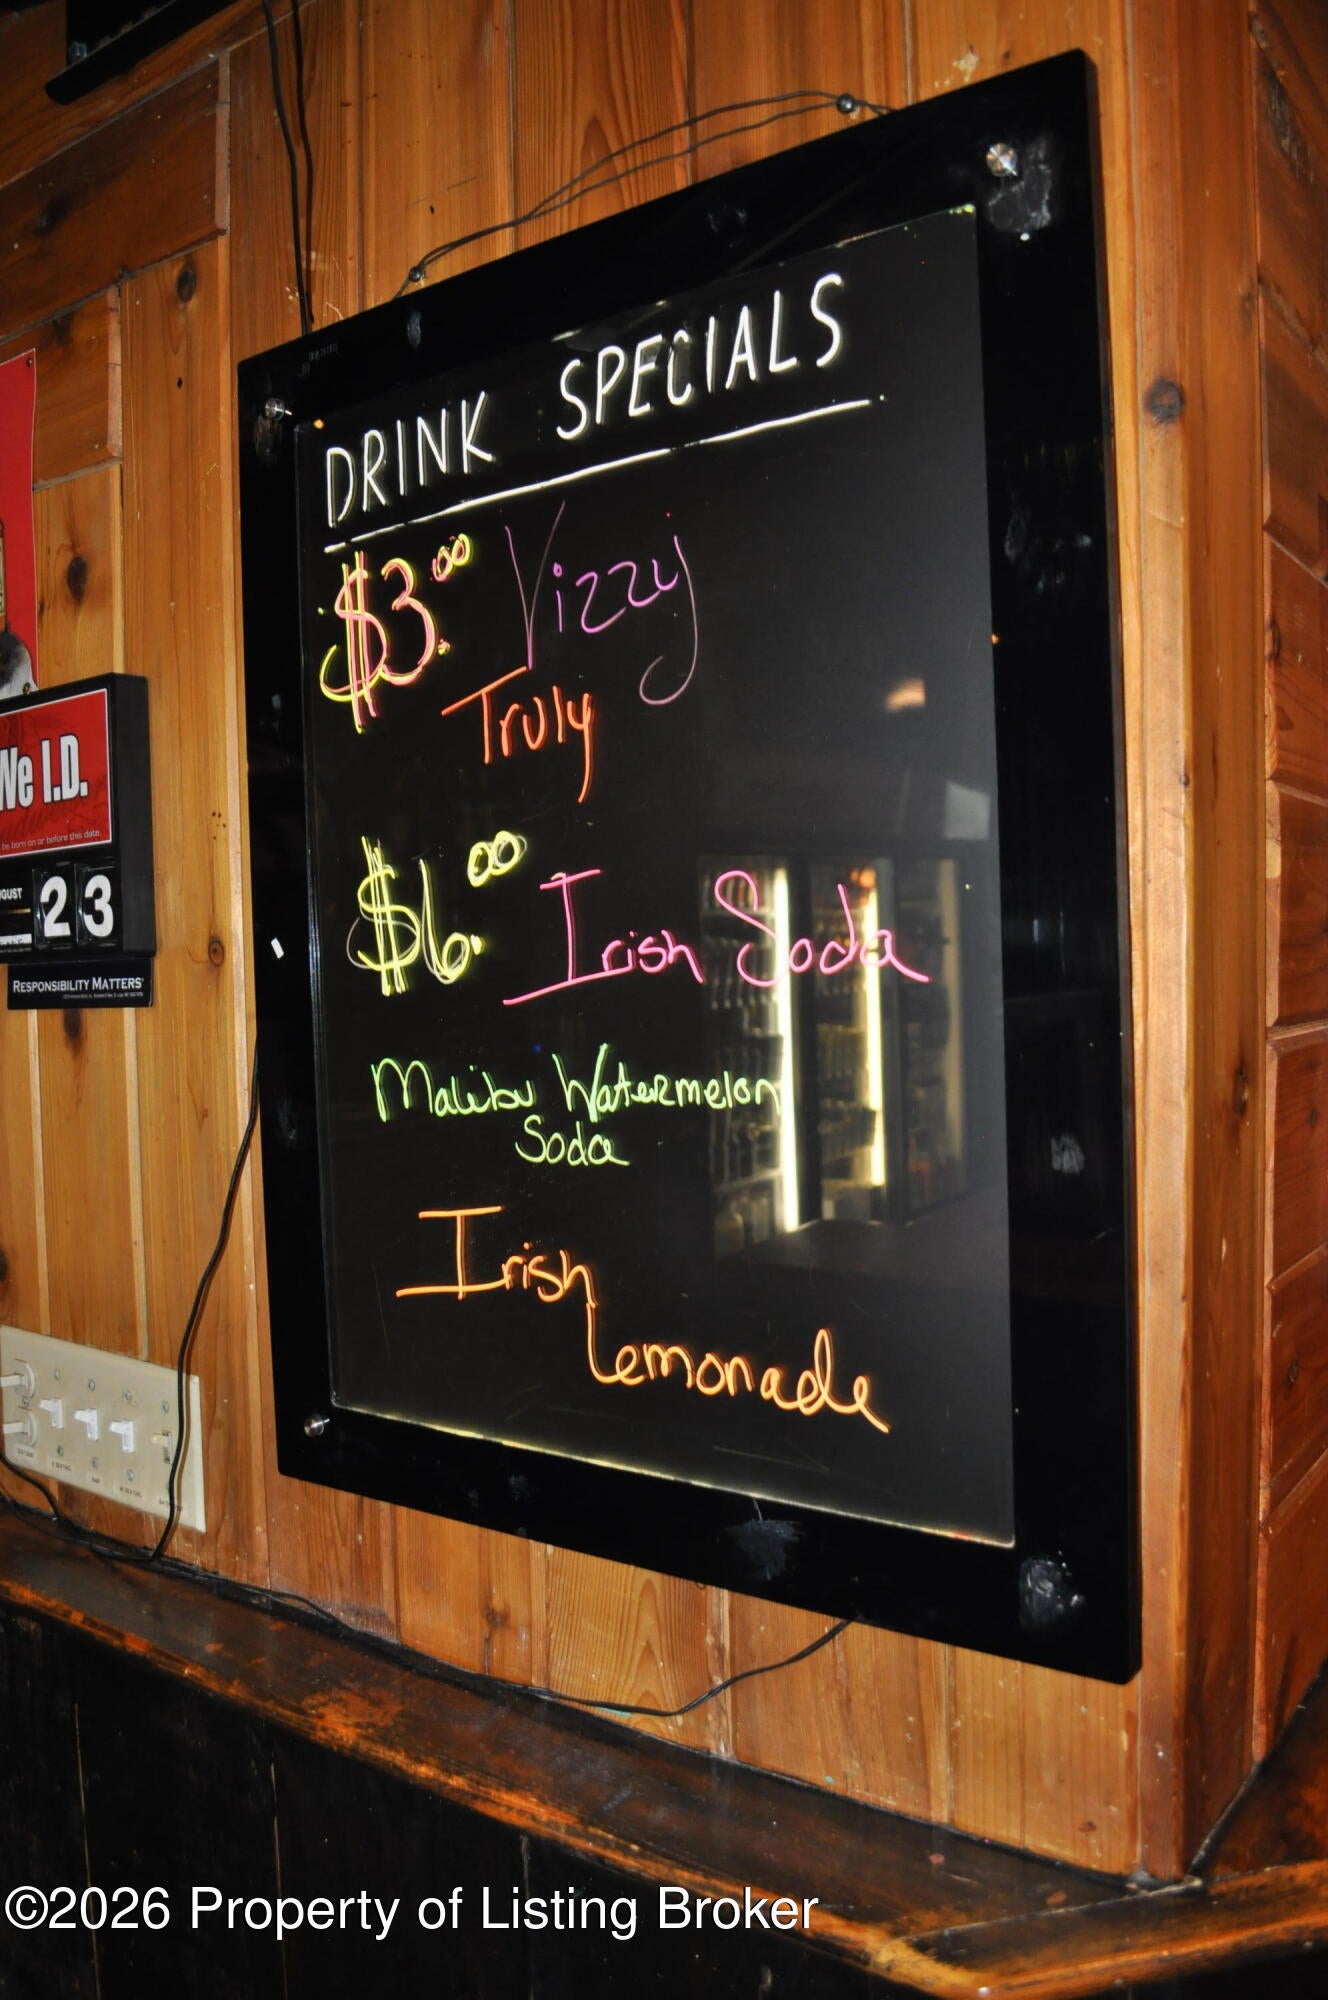 DRINK SPECIALS
$3.00 Vizzy
Truly
$6.00 Irish Soda
Malibu Watermelon
Soda
Irish
Lemonade
We I.D.
be born on or before this date.
23
RESPONSIBILITY MATTERS
©2026 Property of Listing Broker